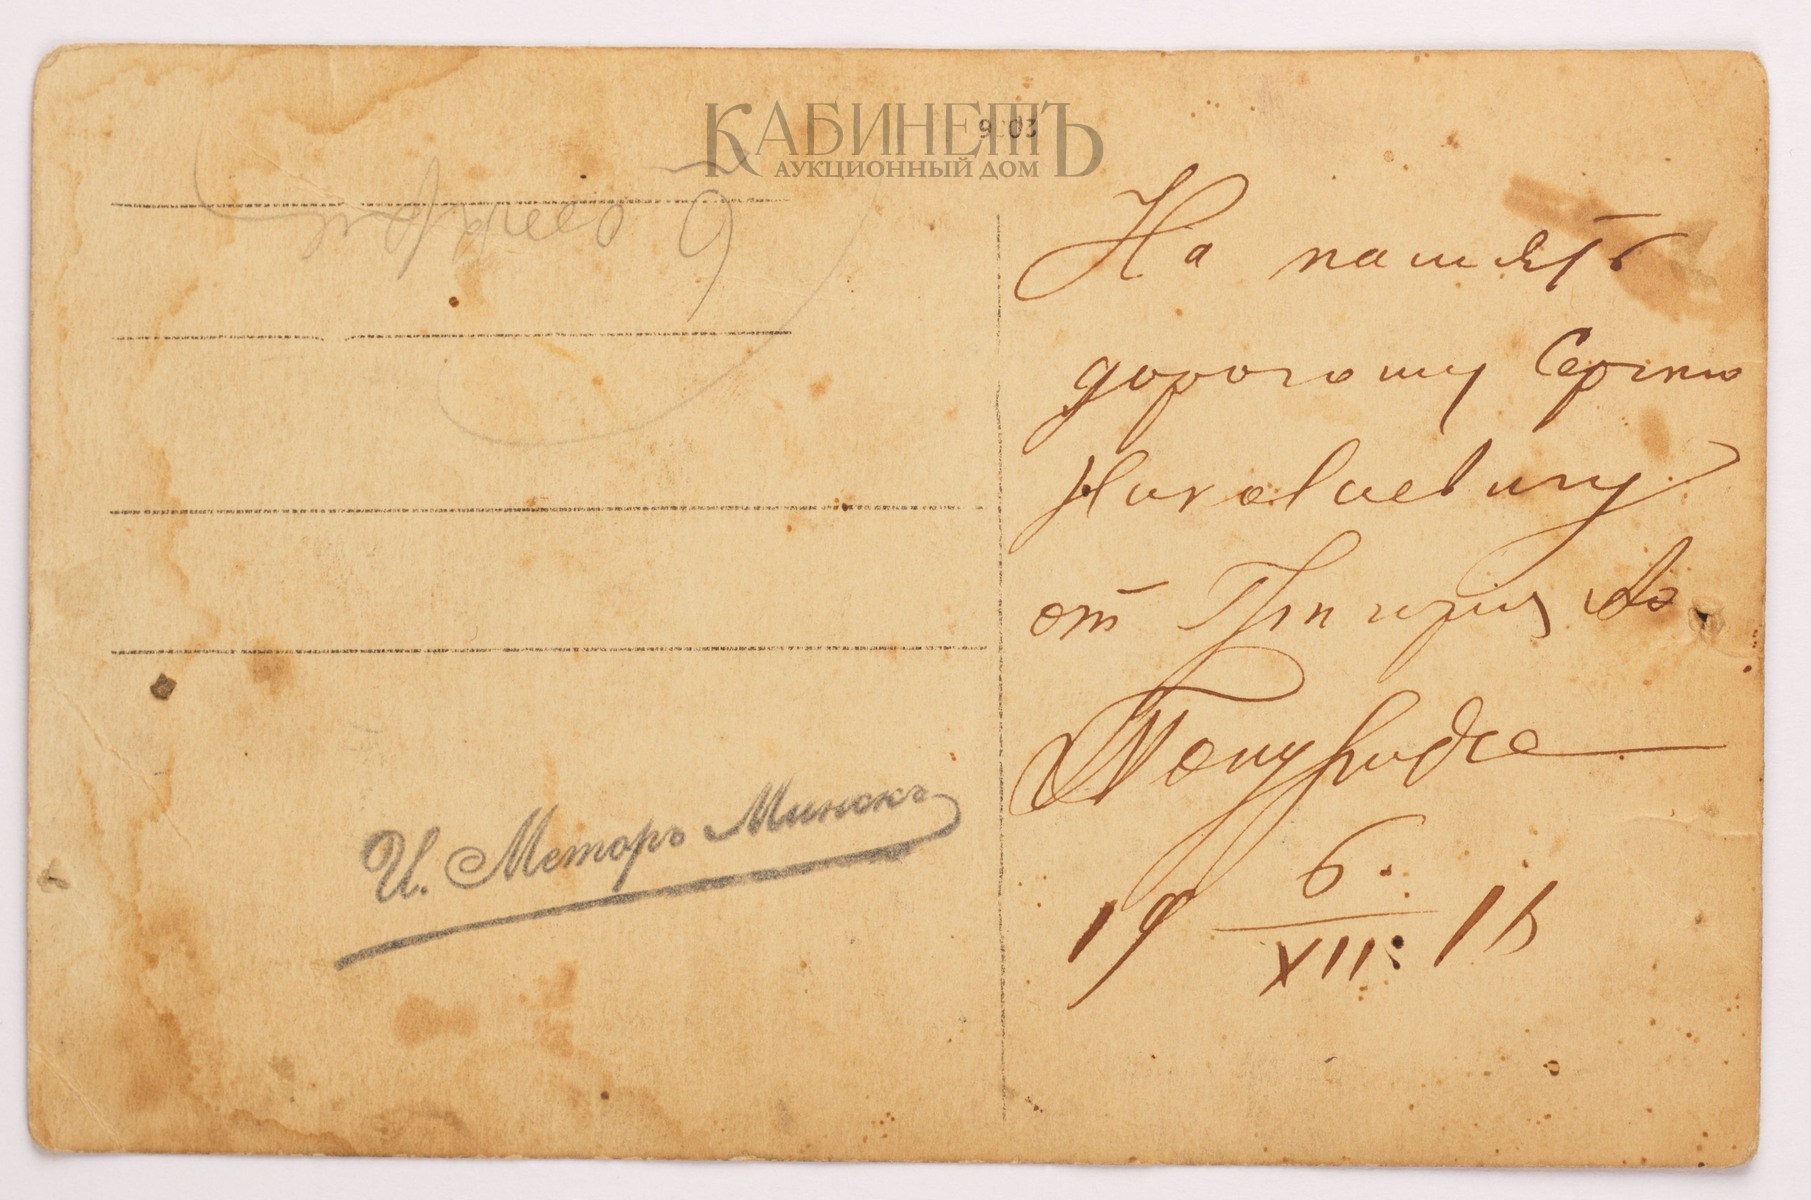 КАБИНЕТЪ
АУКЦИОННЫЙ ДОМ
На память
дорогому Сергею
Николаевичу
от Григория
6.
19 XII: 15
И. Меторъ Минскъ